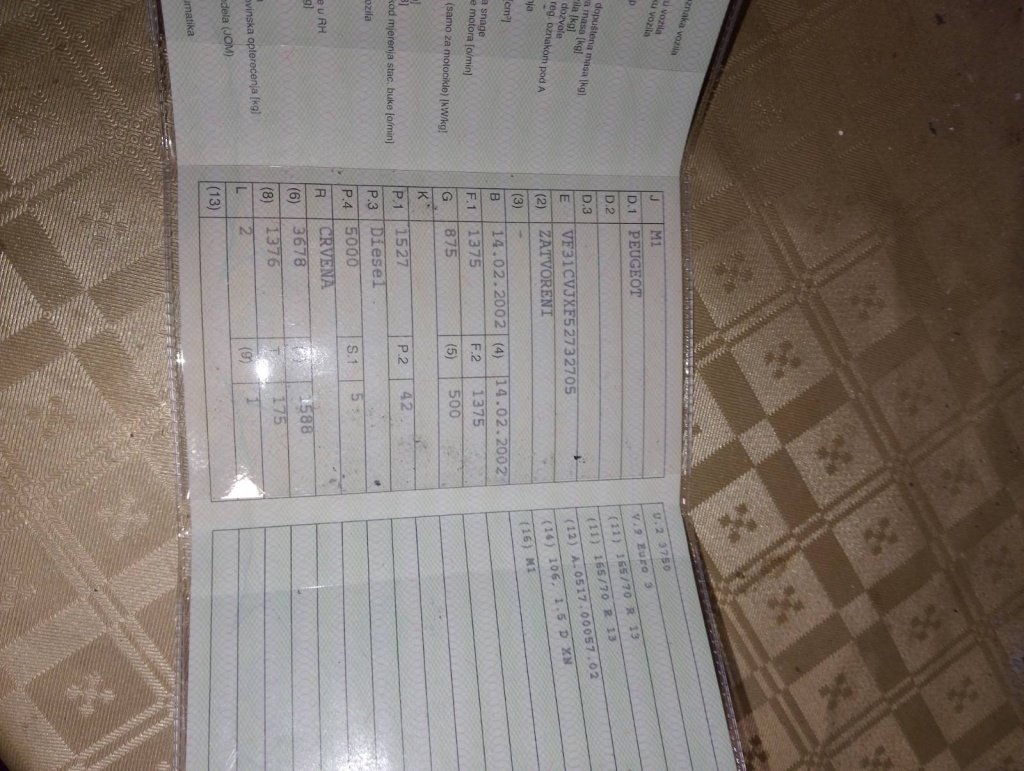 vozila
u vozila
ku vozila
dopuštena masa [kg]
masa [kg]
[kg]
dozvole
reg. oznakom pod A
[cm³]
snage
motora [o/min]
(samo za motocikle) [kW/kg]
kod mjerenja stac. buke [o/min]
ozila
e u RH
ovinska opterećenja [kg]
(JCM)
umatika
J M1
D.1 PEUGEOT
D.2
D.3
E VF31CVJXF52732705
(2) ZATVORENI
(3) -
B 14.02.2002 (4) 14.02.2002
F.1 1375 F.2 1375
G 875 (5) 500
K
P.1 1527 P.2 42
P.3 Diesel
P.4 5000 S.1 5
R CRVENA
(6) 3678 1588
(8) 1376 T 175
L 2 (9) 1
(13)
U.2 3750
V.9 Euro 3
(11) 165/70 R 13
(11) 165/70 R 13
(12) A.0517.00057.02
(14) 106, 1.5 D XN
(16) M1